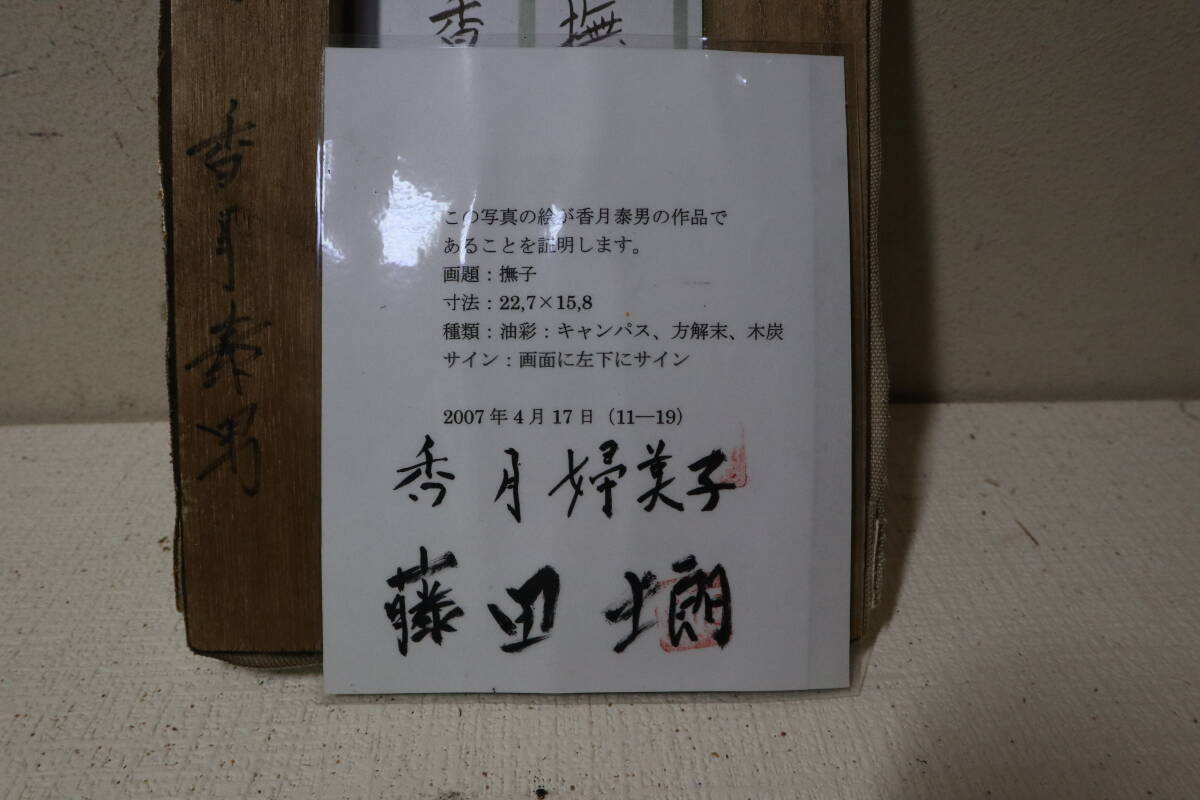 香
撫
香月泰男
この写真の絵が香月泰男の作品で
あることを証明します。
画題：撫子
寸法：22,7×15,8
種類：油彩：キャンパス、方解末、木炭
サイン：画面に左下にサイン
2007年4月17日（11―19）
香月婦美子
藤田士朗